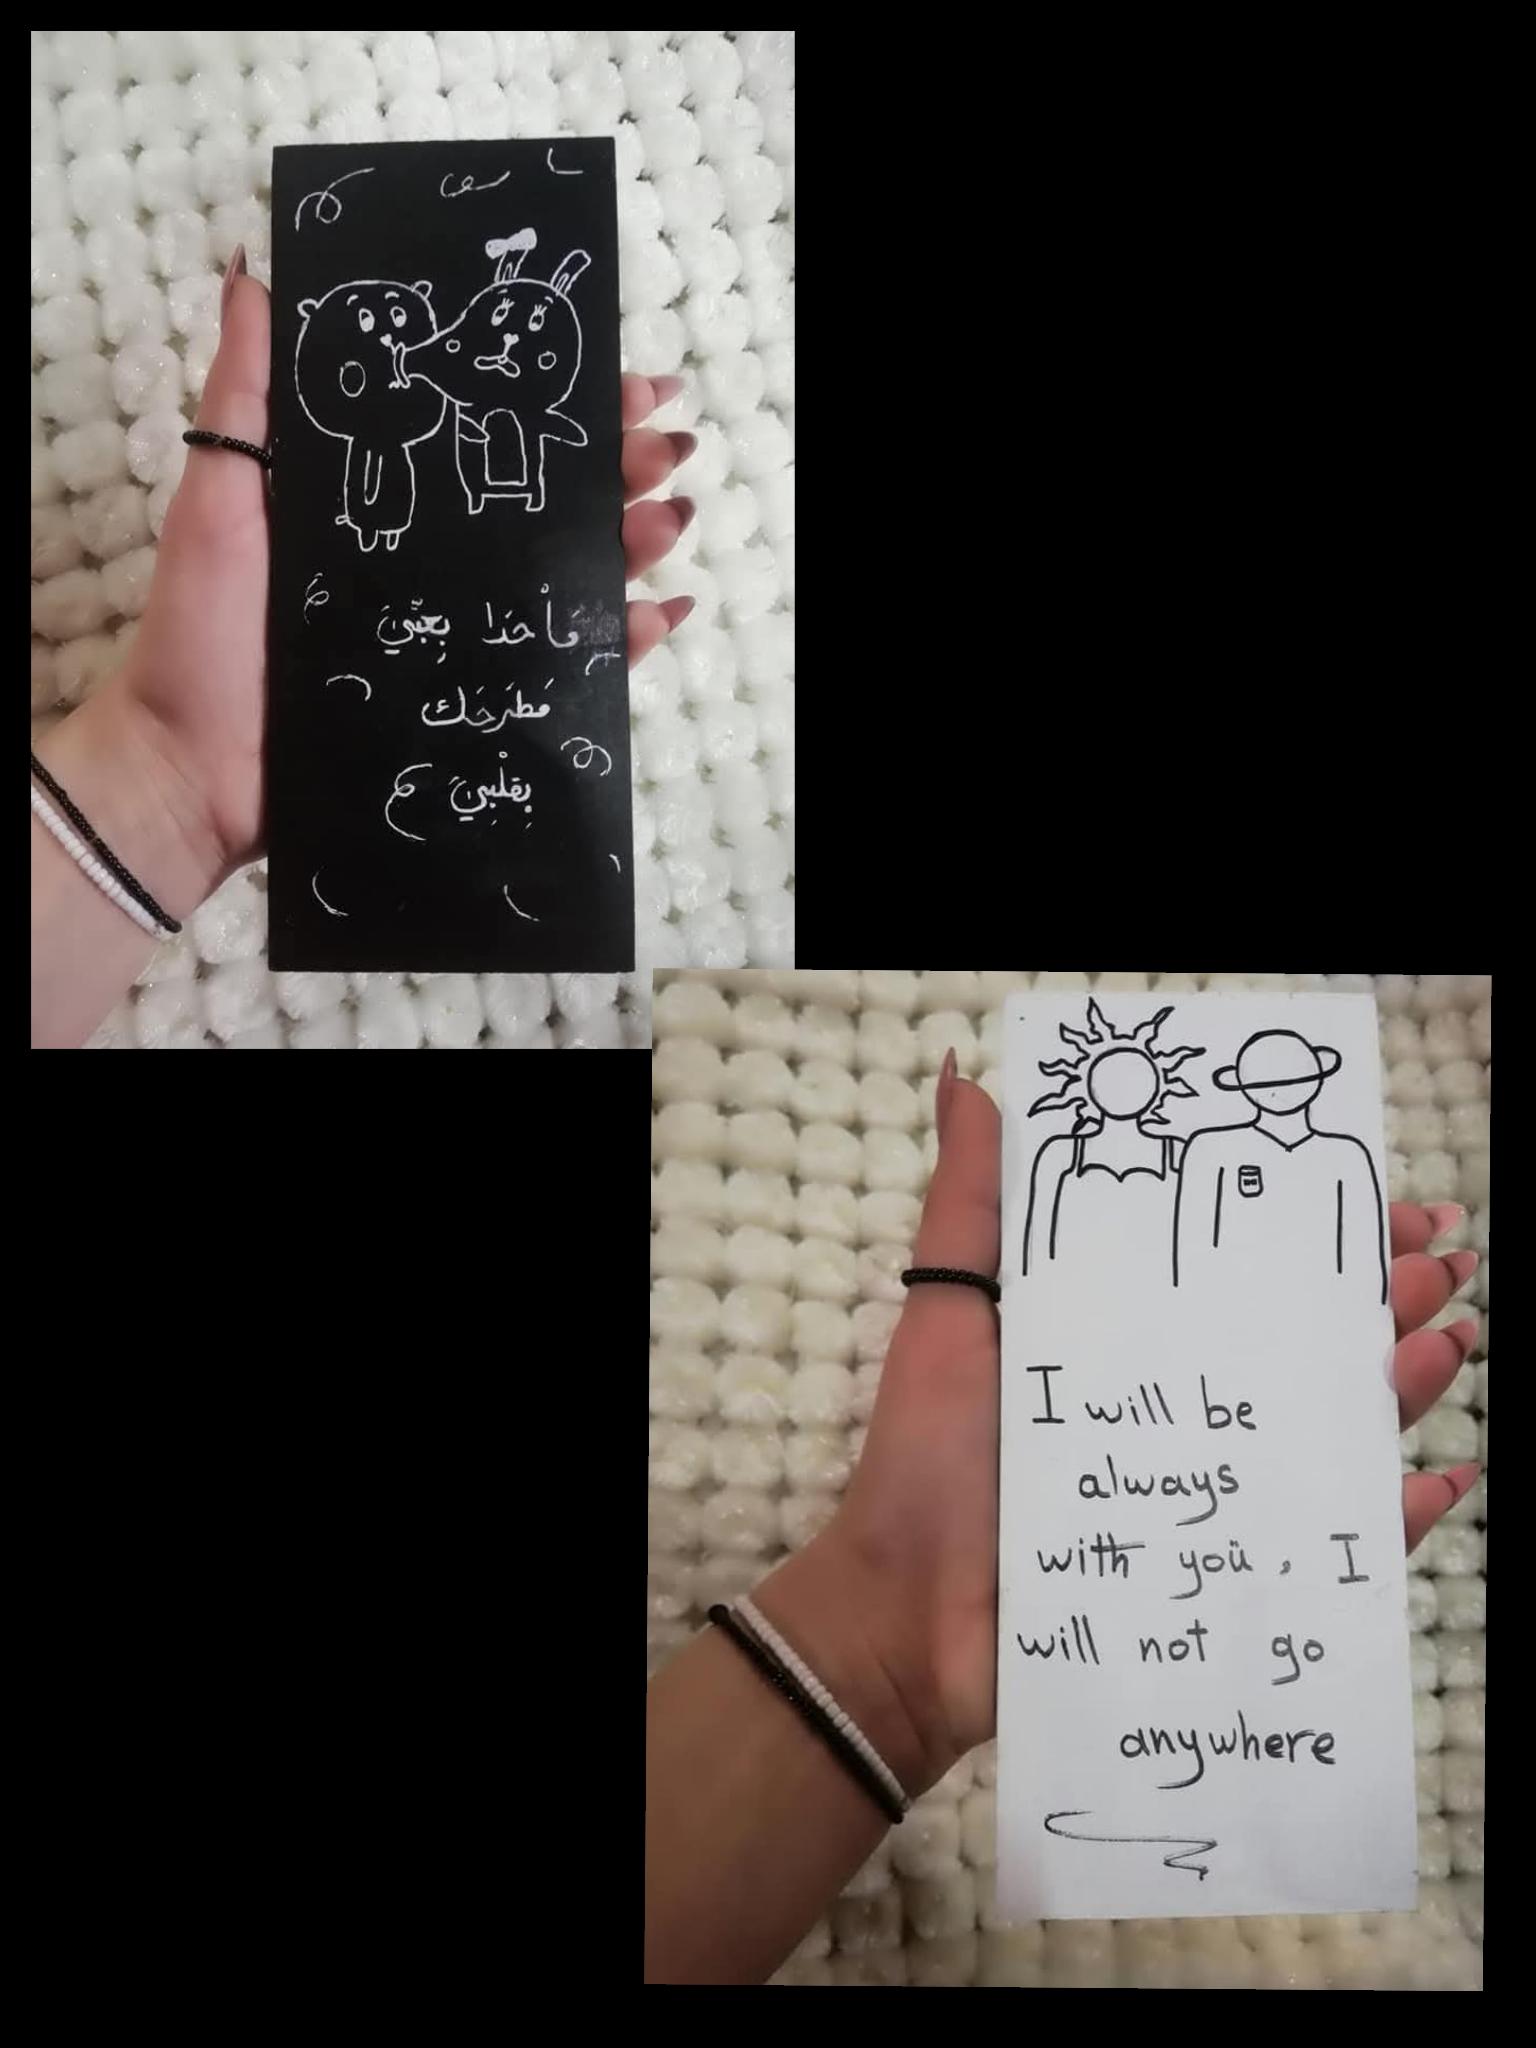 مَاْ حَدَا بِعَبِّيَ
مَطَرحَك
بِقَلْبِيَ
I will be
always
with yoü, I
will not go
anywhere